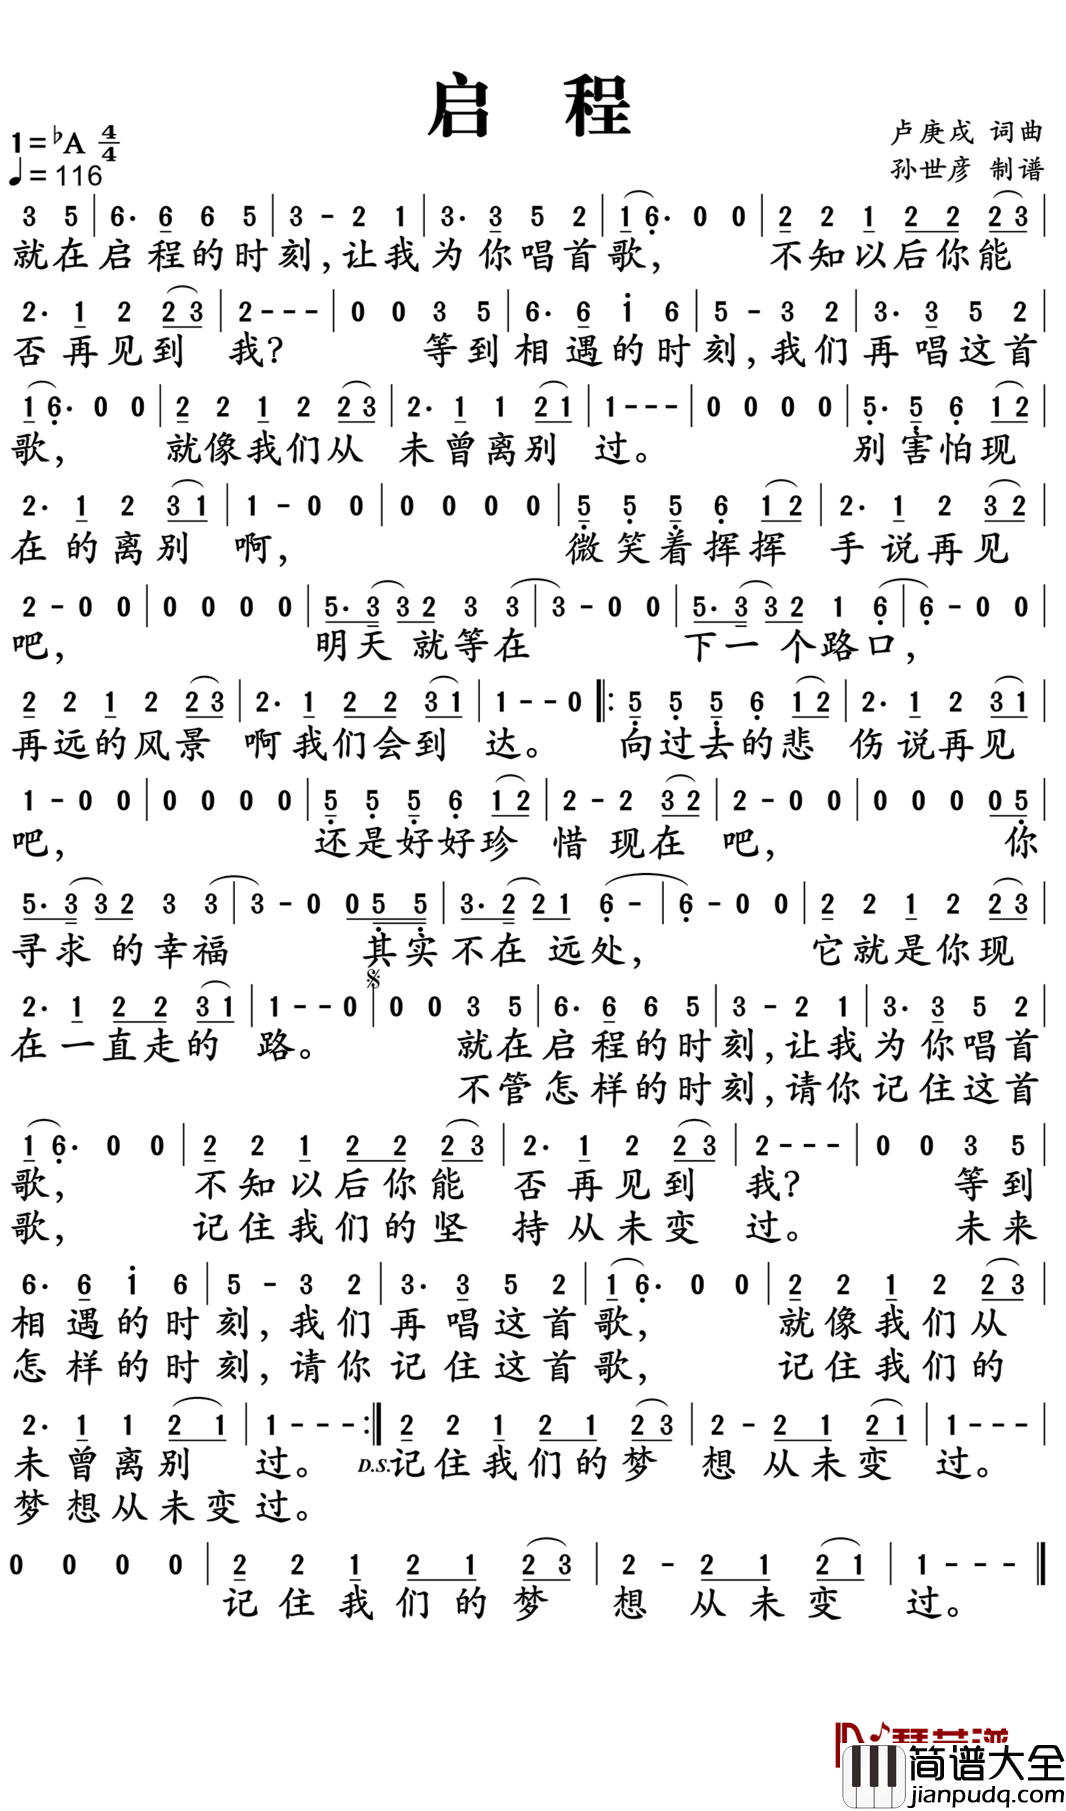 启 程
1=♭A 4/4
♩= 116
卢庚戌 词曲
孙世彦 制谱
3 5 | 6. 6 6 5 | 3 - 2 1 | 3. 3 5 2 | 1 6. 0 0 | 2 2 1 2 2 2 3 |
就在启程的时刻,让我为你唱首歌, 不知以后你能
2. 1 2 2 3 | 2 - - - | 0 0 3 5 | 6. 6 i 6 | 5 - 3 2 | 3. 3 5 2 |
否再见到 我? 等到相遇的时刻,我们再唱这首
1 6. 0 0 | 2 2 1 2 2 3 | 2. 1 1 2 1 | 1 - - - | 0 0 0 0 | 5. 5 6 1 2 |
歌, 就像我们从 未曾离别 过。 别害怕现
2. 1 2 3 1 | 1 - 0 0 | 0 0 0 0 | 5 5 5 6 1 2 | 2. 1 2 3 2 |
在的离别 啊, 微笑着挥挥 手说再见
2 - 0 0 | 0 0 0 0 | 5. 3 3 2 3 3 | 3 - 0 0 | 5. 3 3 2 1 6 | 6 - 0 0 |
吧, 明天就等在 下一个路口,
2 2 1 2 2 3 | 2. 1 2 2 3 1 | 1 - - 0 ‖: 5 5 5 6 1 2 | 2. 1 2 3 1 |
再远的风景 啊我们会到 达。 向过去的悲 伤说再见
1 - 0 0 | 0 0 0 0 | 5 5 5 6 1 2 | 2 - 2 3 2 | 2 - 0 0 | 0 0 0 0 5 |
吧, 还是好好珍 惜现在 吧, 你
5. 3 3 2 3 3 | 3 - 0 0 5 5 | 3. 2 2 1 6 - | 6 - 0 0 | 2 2 1 2 2 3 |
寻求的幸福 其实不在远处, 它就是你现
2. 1 2 2 3 1 | 1 - - 0 | 0 0 3 5 | 6. 6 6 5 | 3 - 2 1 | 3. 3 5 2 |
在一直走的 路。 就在启程的时刻,让我为你唱首
不管怎样的时刻,请你记住这首
1 6. 0 0 | 2 2 1 2 2 2 3 | 2. 1 2 2 3 | 2 - - - | 0 0 3 5 |
歌, 不知以后你能 否再见到 我? 等到
歌, 记住我们的坚 持从未变 过。 未来
6. 6 i 6 | 5 - 3 2 | 3. 3 5 2 | 1 6. 0 0 | 2 2 1 2 2 3 |
相遇的时刻,我们再唱这首歌, 就像我们从
怎样的时刻,请你记住这首歌, 记住我们的
2. 1 1 2 1 | 1 - - - :‖ 2 2 1 2 1 2 3 | 2 - 2 1 2 1 | 1 - - - |
未曾离别 过。 D.S.记住我们的梦 想从未变 过。
梦想从未变过。
0 0 0 0 | 2 2 1 2 1 2 3 | 2 - 2 1 2 1 | 1 - - - ‖
记住我们的梦 想从未变 过。
简谱大全
jianpudq.com